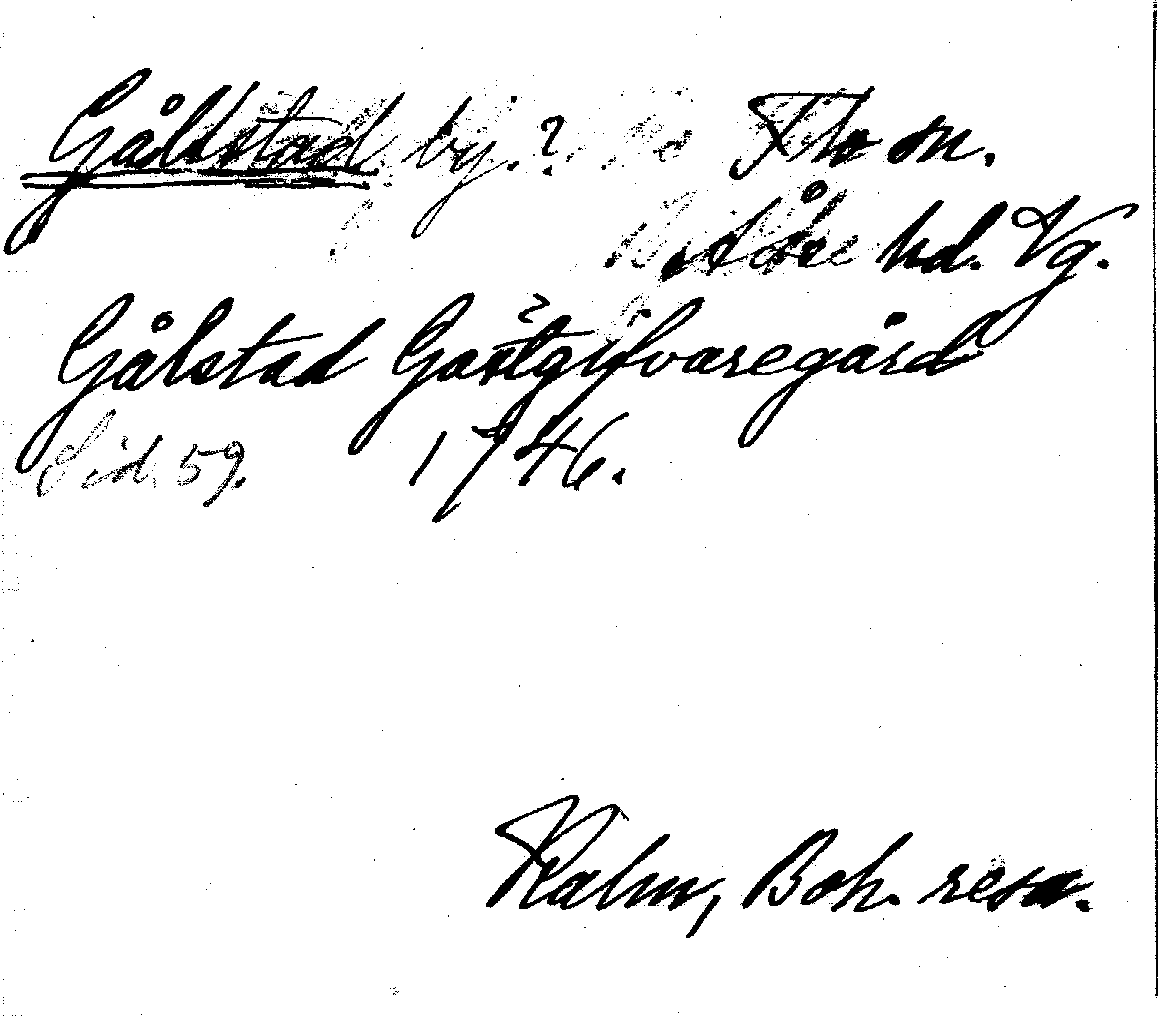 Gålstad by.?
Åse hd. Vg.
Gålstad Gästgifvaregård
Sid. 59. 1746.
Kalm, Boh. resa.